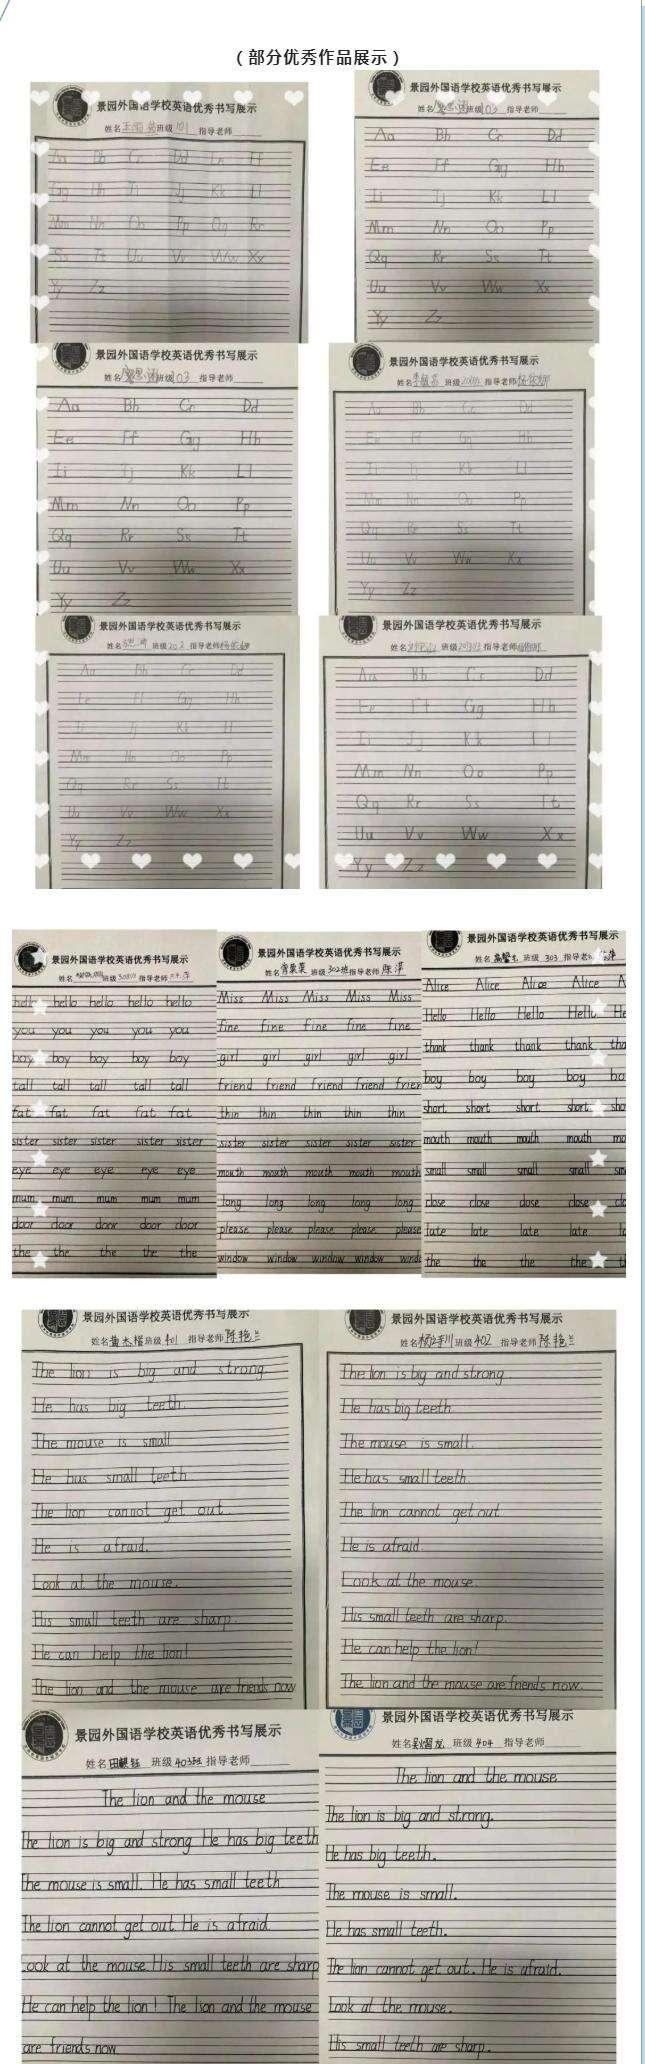 （部分优秀作品展示）
景园外国语学校英语优秀书写展示
姓名 班级101 指导老师
Aa Bb Cc Dd Ee Ff
Gg Hh Ii Jj Kk Ll
Mm Nn Oo Pp Qq Rr
Ss Tt Uu Vv Ww Xx
Yy Zz
景园外国语学校英语优秀书写展示
姓名 班级103 指导老师
Aa Bb Cc Dd
Ee Ff Gg Hh
Ii Jj Kk Ll
Mm Nn Oo Pp
Qq Rr Ss Tt
Uu Vv Ww Xx
Yy Zz
景园外国语学校英语优秀书写展示
姓名 班级103 指导老师
Aa Bb Cc Dd
Ee Ff Gg Hh
Ii Jj Kk Ll
Mm Nn Oo Pp
Qq Rr Ss Tt
Uu Vv Ww Xx
Yy Zz
景园外国语学校英语优秀书写展示
姓名 班级 指导老师
Aa Bb Cc Dd
Ee Ff Gg Hh
Ii Jj Kk Ll
Mm Nn Oo Pp
Qq Rr Ss Tt
Uu Vv Ww Xx
Yy Zz
景园外国语学校英语优秀书写展示
姓名 班级202 指导老师
Aa Bb Cc Dd
Ee Ff Gg Hh
Ii Jj Kk Ll
Mm Nn Oo Pp
Qq Rr Ss Tt
Uu Vv Ww Xx
Yy Zz
景园外国语学校英语优秀书写展示
姓名 班级 指导老师
Aa Bb Cc Dd
Ee Ff Gg Hh
Ii Jj Kk Ll
Mm Nn Oo Pp
Qq Rr Ss Tt
Uu Vv Ww Xx
Yy Zz
景园外国语学校英语优秀书写展示
姓名 班级 指导老师
hello hello hello hello hello
you you you you you
boy boy boy boy boy
tall tall tall tall tall
fat fat fat fat fat
sister sister sister sister sister
eye eye eye eye eye
mum mum mum mum mum
door door door door door
the the the the the
景园外国语学校英语优秀书写展示
姓名 班级302班 指导老师 陈萍
Miss Miss Miss Miss Miss
fine fine fine fine fine
girl girl girl girl girl
friend friend friend friend frien
thin thin thin thin thin
sister sister sister sister sister
mouth mouth mouth mouth mouth
long long long long long
please please please please please
window window window window wind
景园外国语学校英语优秀书写展示
姓名 班级 303 指导老
Alice Alice Alice Alice A
Hello Hello Hello Hello He
thank thank thank thank tha
boy boy boy boy bo
short short short short sho
mouth mouth mouth mouth mo
small small small small sm
close close close close clo
late late late late la
the the the the t
景园外国语学校英语优秀书写展示
姓名 班级401 指导老师陈艳兰
The lion is big and strong.
He has big teeth.
The mouse is small
He has small teeth
The lion cannot get out.
He is afraid.
Look at the mouse.
His small teeth are sharp.
He can help the lion!
The lion and the mouse are friends now
景园外国语学校英语优秀书写展示
姓名 班级402 指导老师 陈艳兰
The lion is big and strong.
He has big teeth.
The mouse is small.
He has small teeth.
The lion cannot get out
He is afraid.
Look at the mouse.
His small teeth are sharp.
He can help the lion!
The lion and the mouse are friends now.
景园外国语学校英语优秀书写展示
姓名 班级403班 指导老师
The lion and the mouse
The lion is big and strong He has big teeth
The mouse is small. He has small teeth.
The lion cannot get out. He is afraid
Look at the mouse His small teeth are sharp
He can help the lion! The lion and the mouse
are friends now
景园外国语学校英语优秀书写展示
姓名 班级 404 指导老师
The lion and the mouse
The lion is big and strong.
He has big teeth.
The mouse is small.
He has small teeth.
The lion cannot get out. He is afraid.
Look at the mouse.
His small teeth are sharp.